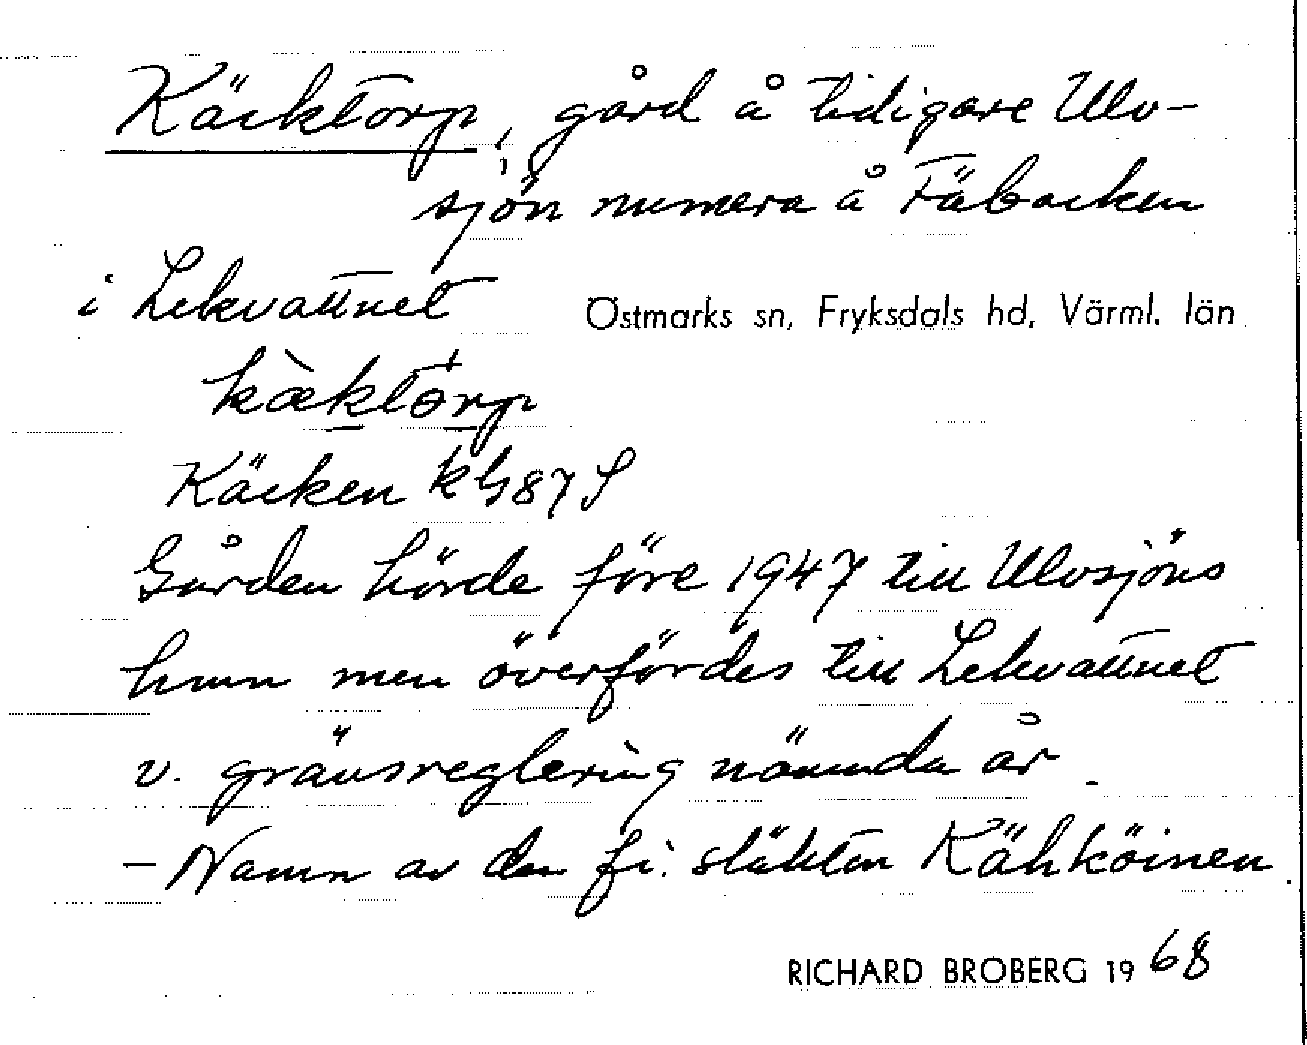 Käcktorp, gård å tidigare Ulv-
sjön numera å Fäbacken
i Lekvattnet Östmarks sn, Fryksdals hd, Värml. län
kæ̀którp
Käcken kG87S
Gården hörde före 1947 till Ulvsjöns
hmn men överfördes till Lekvattnet
v. gränsreglering nämnda år
– Namn av den fi. släkten Kähköinen.
RICHARD BROBERG 1968